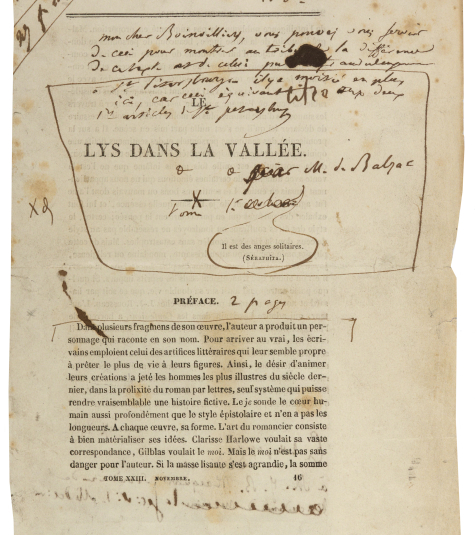 mon cher Boinvilliers, vous pouvez vous servir
de ceci pour montrer au tribunal la différence
de ce texte et de celui
à St Pétersbourg
ici, car ceci équivaut aux deux
1ers articles St petersbourg
titre
LE
LYS DANS LA VALLÉE.
par M. de Balzac
X
Tome 1er
Il est des anges solitaires.
(SÉRAPHÎTA.)
PRÉFACE. 2 pages
Dans plusieurs fragmens de son œuvre, l'auteur a produit un per-
sonnage qui raconte en son nom. Pour arriver au vrai, les écri-
vains emploient celui des artifices littéraires qui leur semble propre
à prêter le plus de vie à leurs figures. Ainsi, le désir d'animer
leurs créations a jeté les hommes les plus illustres du siècle der-
nier, dans la prolixité du roman par lettres, seul système qui puisse
rendre vraisemblable une histoire fictive. Le je sonde le cœur hu-
main aussi profondément que le style épistolaire et n'en a pas les
longueurs. A chaque œuvre, sa forme. L'art du romancier consiste
à bien matérialiser ses idées. Clarisse Harlowe voulait sa vaste
correspondance, Gilblas voulait le moi. Mais le moi n'est pas sans
danger pour l'auteur. Si la masse lisante s'est agrandie, la somme
TOME XXIII. NOVEMBRE. 16